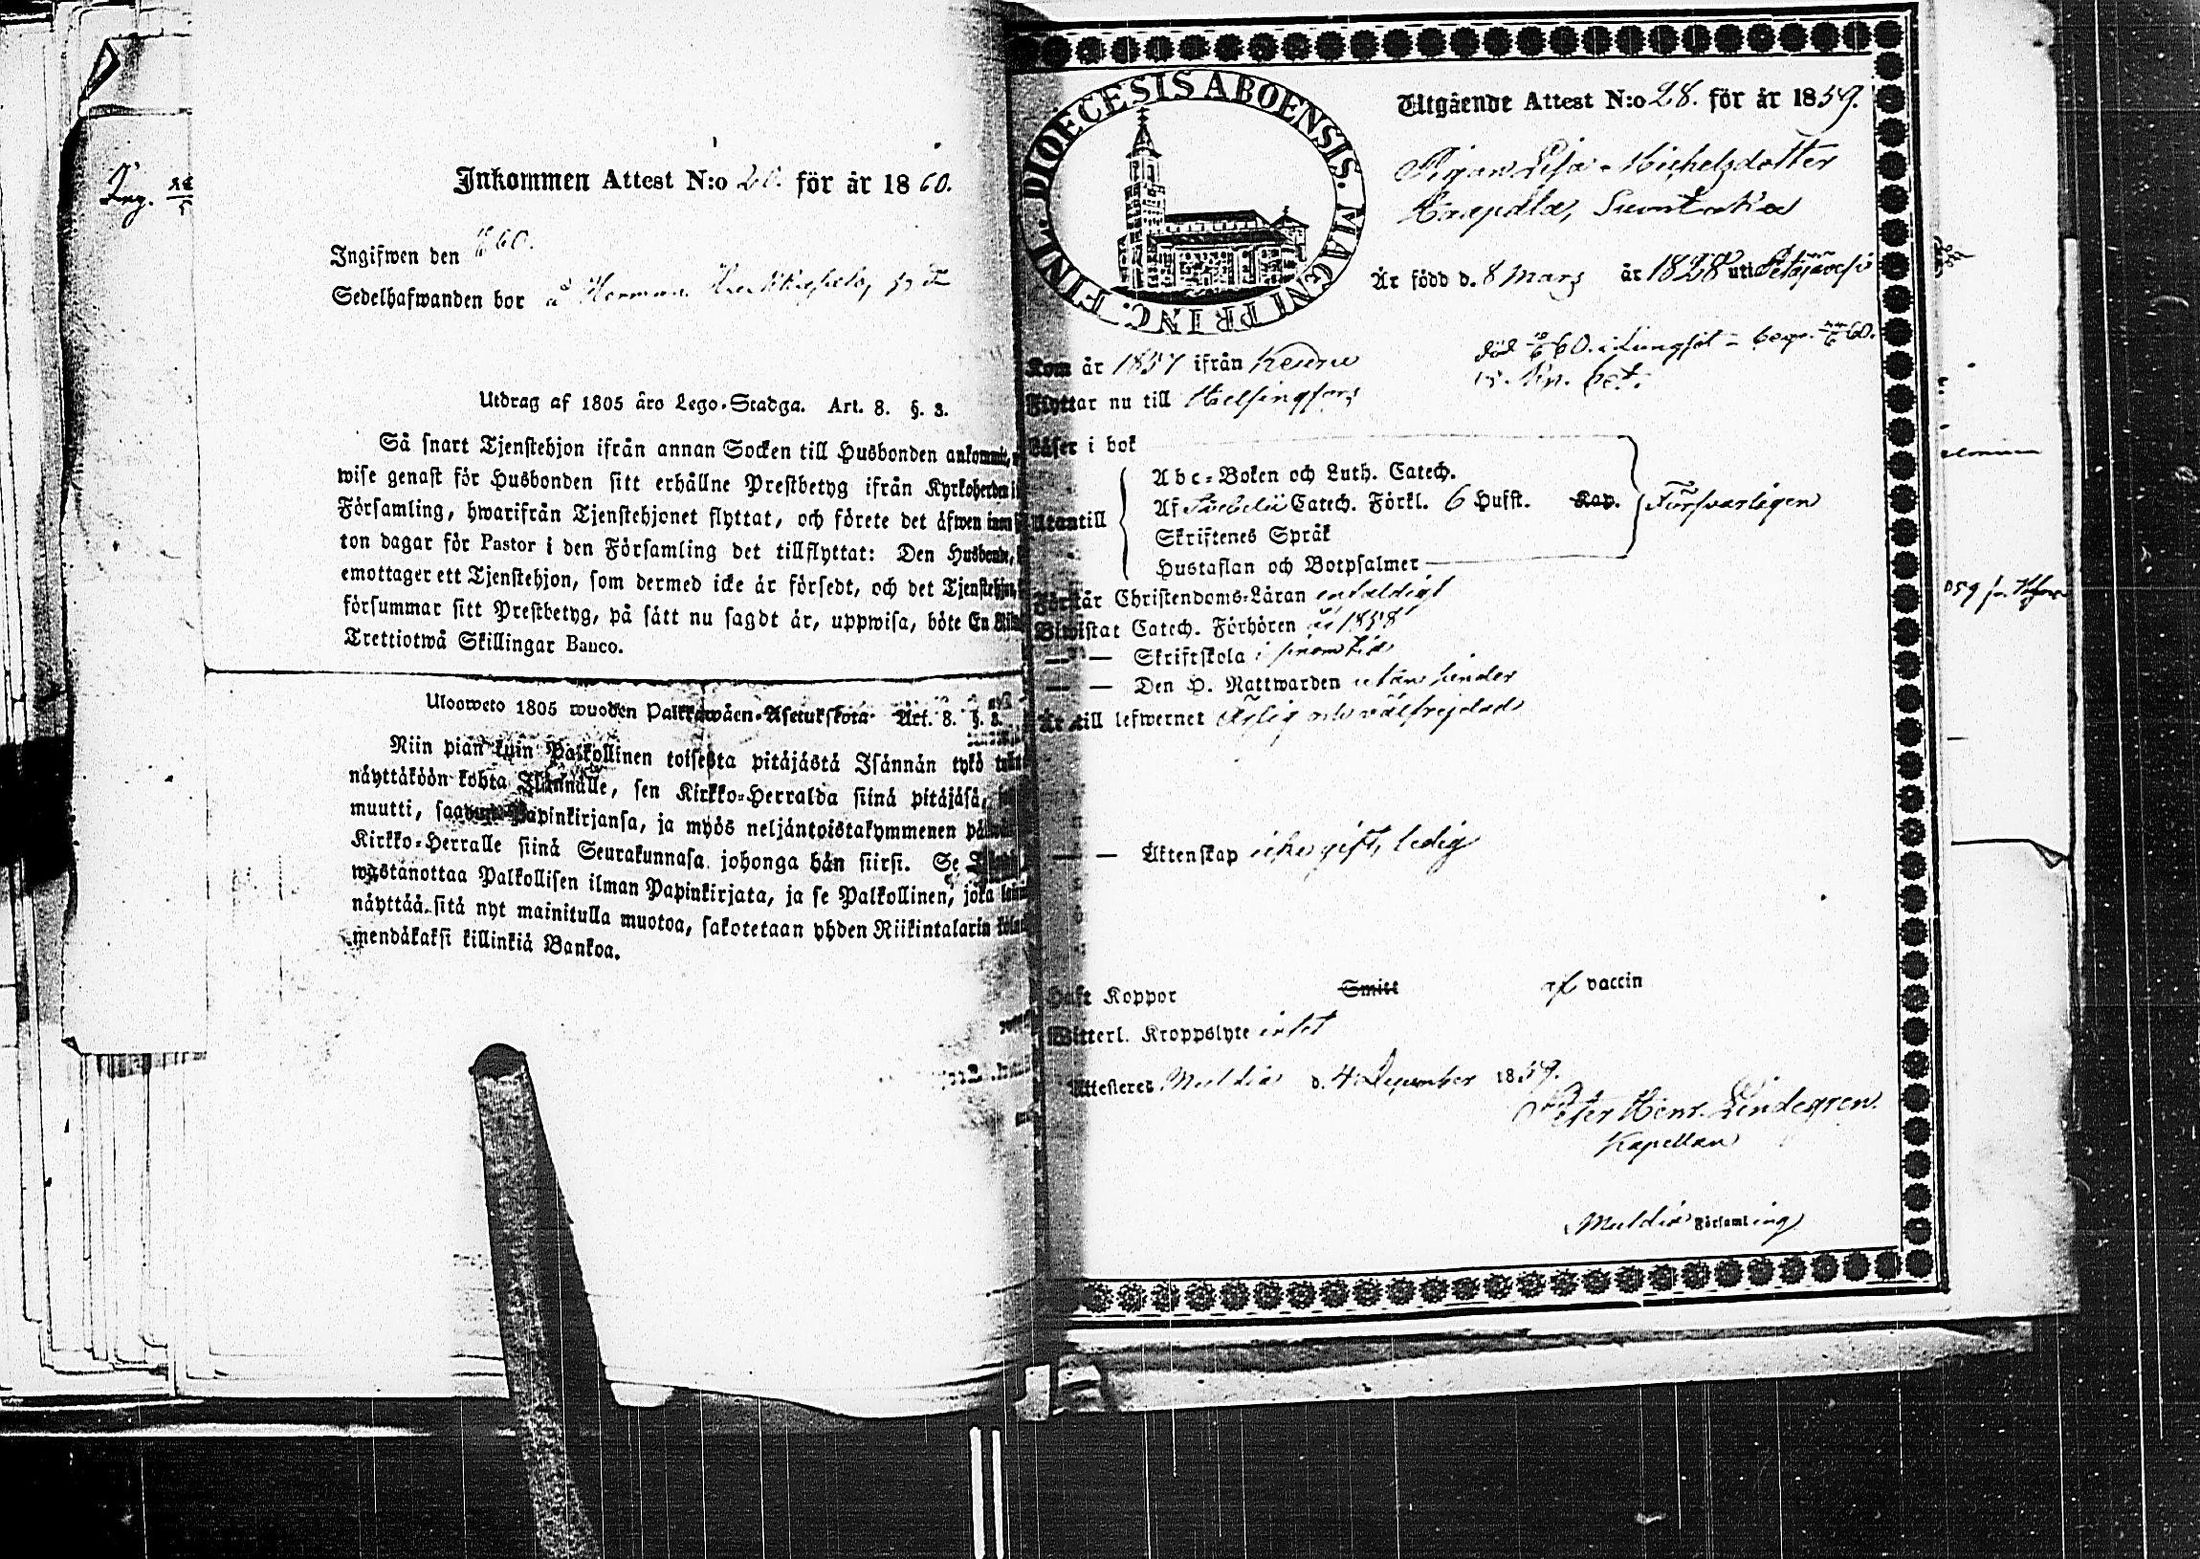 Inkommen Attest N:o 20. för år 1860.
Ingifwen den 1860.
Sedelhafwanden bor
Utdrag af 1805 års Lego-Stadga. Art. 8. §. 3.
Så snart Tjenstehjon ifrån annan Socken till Husbonden
wise genast för Husbonden sitt erhållne Prestbetyg ifrån
Församling, hwarifrån Tjenstehjonet flyttat, och förete det åfwen
ton dagar för Pastor i den Församling det tillflyttat: Den
emottager ett Tjenstehjon, som dermed icke är försedt, och det
försummar sitt Prestbetyg, på sätt nu sagdt är, uppwisa, böte En
Trettiotwå Skillingar Banco.
Ulosweto 1805 wuoden Palkkawäen-Asetuksesta Art. 8. §. 3.
Niin pian kuin Palkollinen toisesta pitäjästä Isännän tykö
näyttäköön kohta Isännälle, sen Kirkko-Herralda siinä pitäjäsä,
muutti, saadun Papinkirjansa, ja myös neljäntoistakymmenen
Kirkko-Herralle siinä Seurakunnasa johonga hän siirsi. Se
wastanottaa Palkollisen ilman Papinkirjata, ja se Palkollinen, joka
näyttää sitä nyt mainitulla muotoa, sakotetaan yhden Riikintalarin
mendäkaksi killinkiä Bankoa.
DIOECESIS ABOENSIS. MAGNI PRINC. FINL.
Utgående Attest N:o 28. för år 1859.
Lisa Michelsdotter
Är född d. 8 Mars år 1828 uti Petäjävesi
Kom år 1857 ifrån Keuru
Flyttar nu till Helsingfors
Läser i bok
Abc-Boken och Luth. Catech.
Af Svebelii Catech. Förkl. 6 Hufst. Kap. Försvarligen
Utantill
Skriftenes Språk
Hustaflan och Botpsalmer
Förstår Christendoms-Läran enfaldigt
Biwistat Catech. Förhören år 1858
— — Skriftskola i
— — Den H. Nattwarden utan hinder
Är till lefwernet Ärlig och välfrejdad
— — Äktenskap icke gift, ledig
Haft Koppor Smitt af vaccin
Witterl. Kroppslyte intet
Attesteres Muldia d. 4 December 1859.
Peter Henr. Lindegren
Kapellan
Muldia Församling